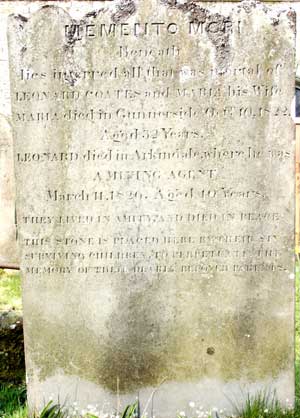 MEMENTO MORI
Beneath
lies interred all that was mortal of
LEONARD COATES and MARIA his Wife
MARIA died in Gunnerside Oct. 10, 1822.
Aged 32 Years.
LEONARD died in Arkindale, where he was
A MINING AGENT
March 11, 1826. Aged 40 Years.
THEY LIVED IN AMITY, AND DIED IN PEACE
THIS STONE IS PLACED HERE BY THEIR SIX
SURVIVING CHILDREN, TO PERPETUATE THE
MEMORY OF THEIR DEARLY BELOVED PARENTS.